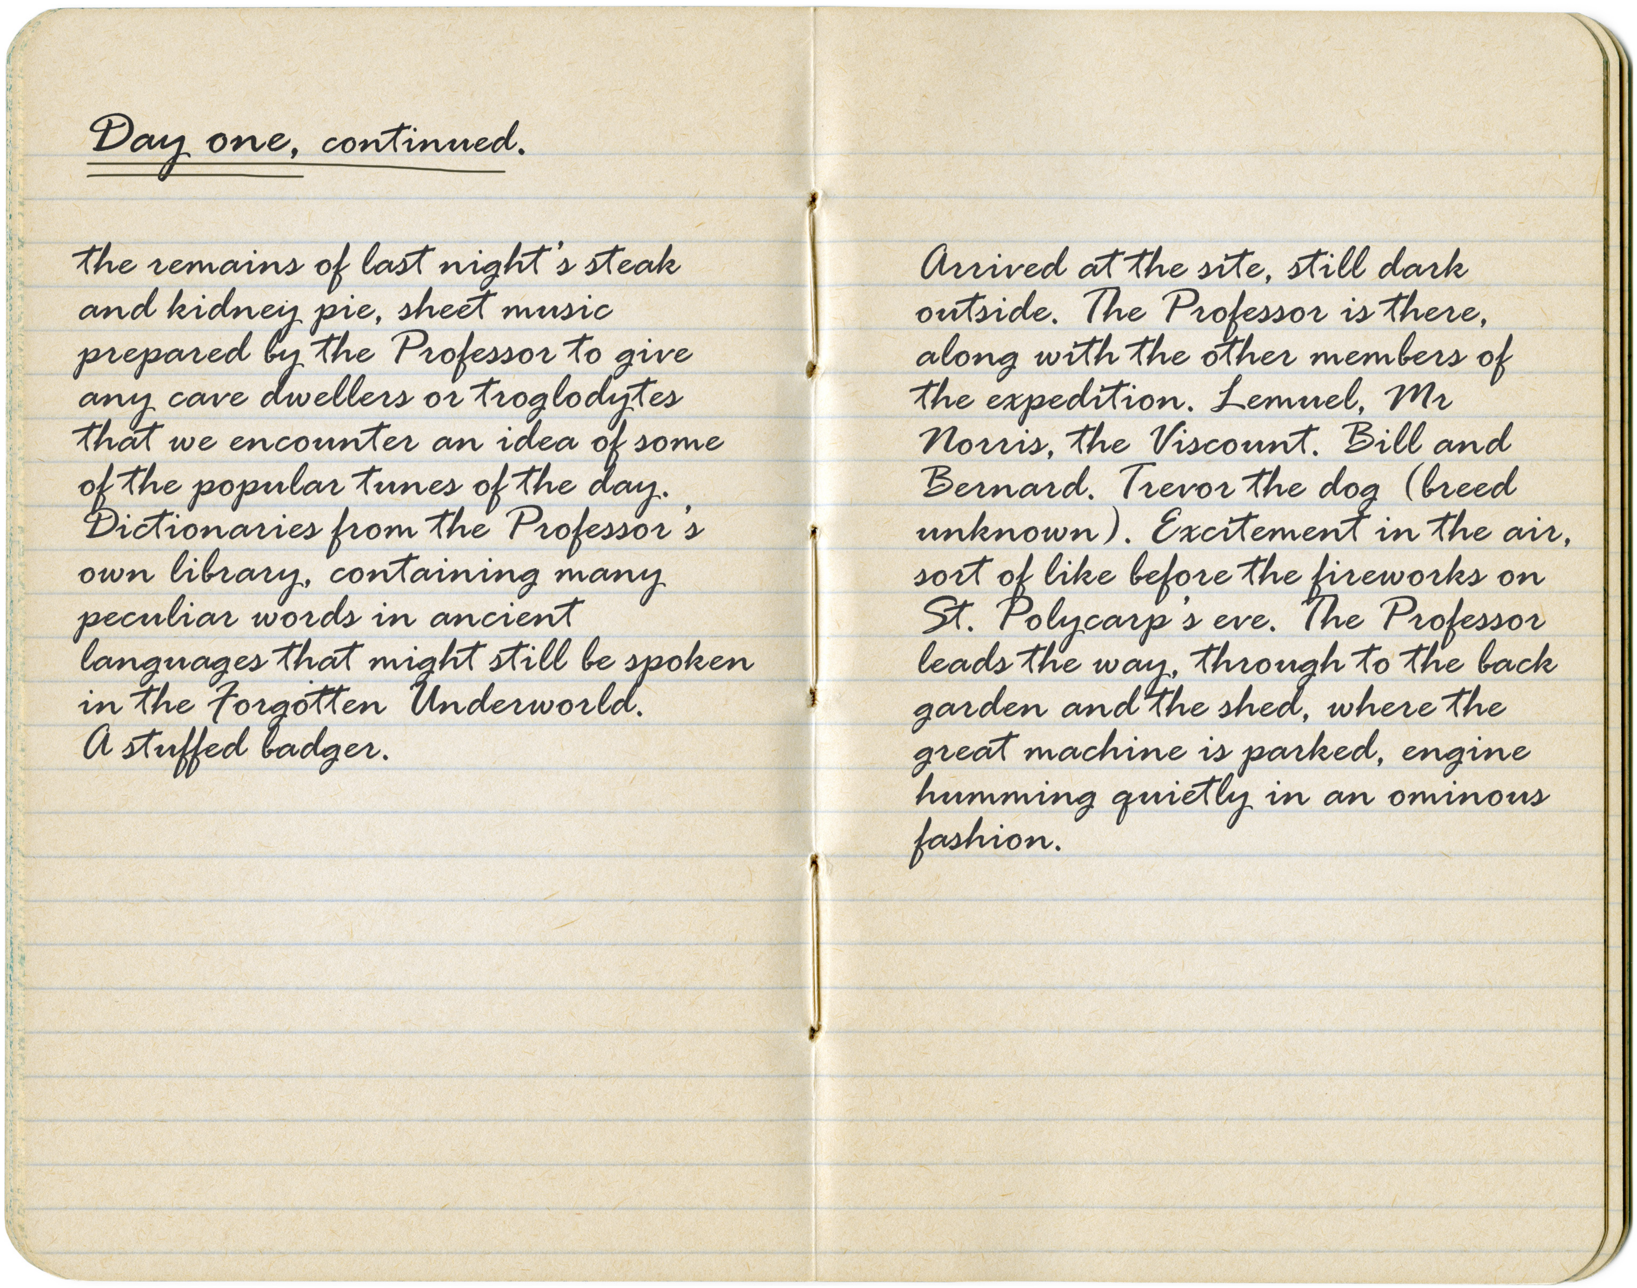 Day one, continued.
the remains of last night's steak
and kidney pie, sheet music
prepared by the Professor to give
any cave dwellers or troglodytes
that we encounter an idea of some
of the popular tunes of the day.
Dictionaries from the Professor's
own library, containing many
peculiar words in ancient
languages that might still be spoken
in the Forgotten Underworld.
A stuffed badger.
Arrived at the site, still dark
outside. The Professor is there,
along with the other members of
the expedition. Lemuel, Mr
Norris, the Viscount. Bill and
Bernard. Trevor the dog (breed
unknown). Excitement in the air,
sort of like before the fireworks on
St. Polycarp's eve. The Professor
leads the way, through to the back
garden and the shed, where the
great machine is parked, engine
humming quietly in an ominous
fashion.